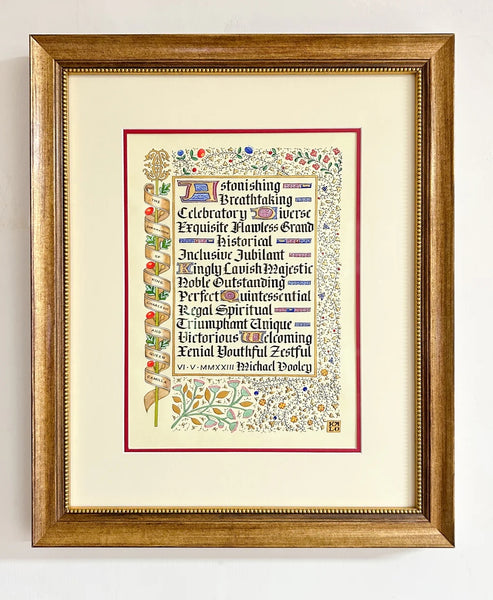 Astonishing
Breathtaking
Celebratory Diverse
Exquisite Flawless Grand
Historical
Inclusive Jubilant
Kingly Lavish Majestic
Noble Outstanding
Perfect Quintessential
Regal Spiritual
Triumphant Unique
Victorious Welcoming
Xenial Youthful Zestful
VI·V·MMXXIII Michael Dooley
THE
CORONATION
OF
KING
CHARLES III
AND
QUEEN
CAMILLA